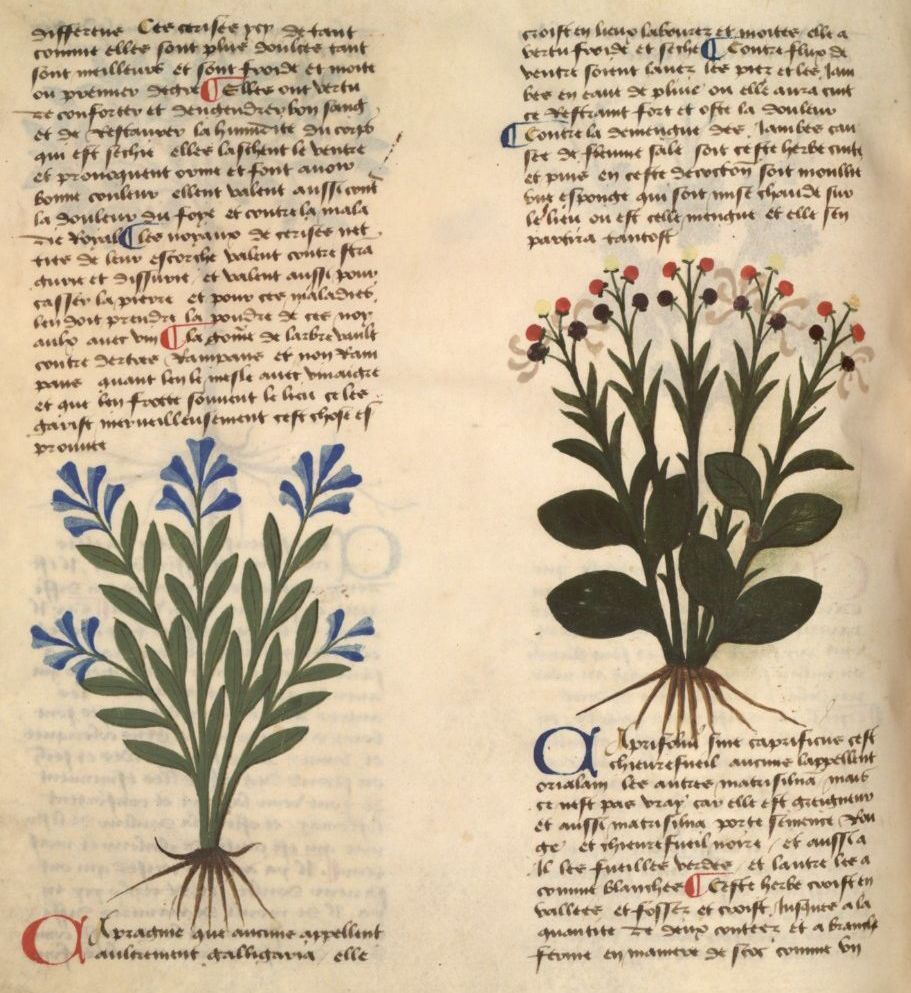 differens Ces cerises icy de tant
comme elles sont plus doulces tant
sont meilleurs et sont froide et moite
ou premier degre ¶ Elles ont vertu
de conforter et dengendrer bon sang
et de Restaurer la humidite du corps
qui est sechie elles laschent le ventre
et provoquent orine et font avoir
bonne couleur ellent valent aussi cont
la douleur du foye et contre la mala
die Royal ¶ les noyaux de cerises net
ties de leur escorche valent contre stra
gurie et dissurie et valent aussi pour
casser la pierre et pour ces maladies
len doit prendre la poudre de ces noy
aulx avec vin ¶ la gome de larbre vault
contre dertres Rampans et non Ram
pans quant len le mesle avec vinaigre
et que len frotte souvent le lieu ce les
garist merveilleusement cest chose es
prouvee
Apragine que aucuns appellent
aultrement galligaria elle
croist en lieux labourez et moites elle a
vertu froide et seche ¶ Contre flux de
ventre soient lavez les piez et les Jam
bes en eaue de pluie ou elle aura cuit
ce Restraint fort et oste la douleur
¶ Contre la demengue des Jambes cau
see de fleume sale soit ceste herbe cuite
et puis en ceste decoction soit moullie
une esponge qui soit mise chaude sur
le lieu ou est celle mengue et elle sen
partira tantost
Caprifolium sive caprificus cest
chievrefueil aucuns lappellent
orialam les autres matrisilva mais
ce nest pas vray car elle est greigneur
et aussi matrisilva porte semence Rou
ge et chievrefueil noire et aussi a
Il les fueilles verdes et lautre les a
comme blanches ¶ Ceste herbe croist en
vallees et fossez et croist Jusques a la
quantite de deux coutees et a branche
ferme en maniere de stoc comme un